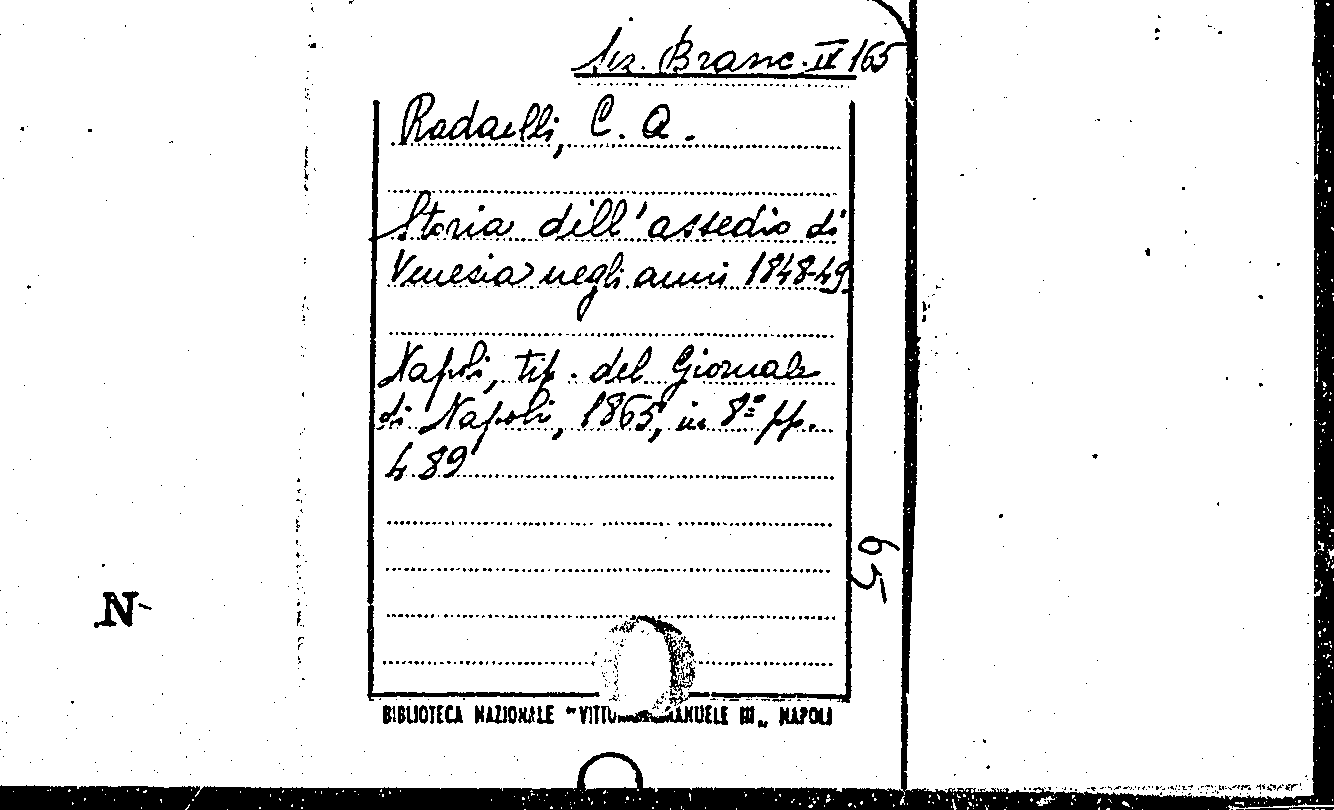 Sez. Branc. IV 165
Radaelli, C. A.
Storia dell'assedio di
Venezia negli anni 1848-49.
Napoli, tip. del Giornale
di Napoli, 1865, in 8º pp.
489
65
N
BIBLIOTECA NAZIONALE "VITTO EMANUELE III„ NAPOLI